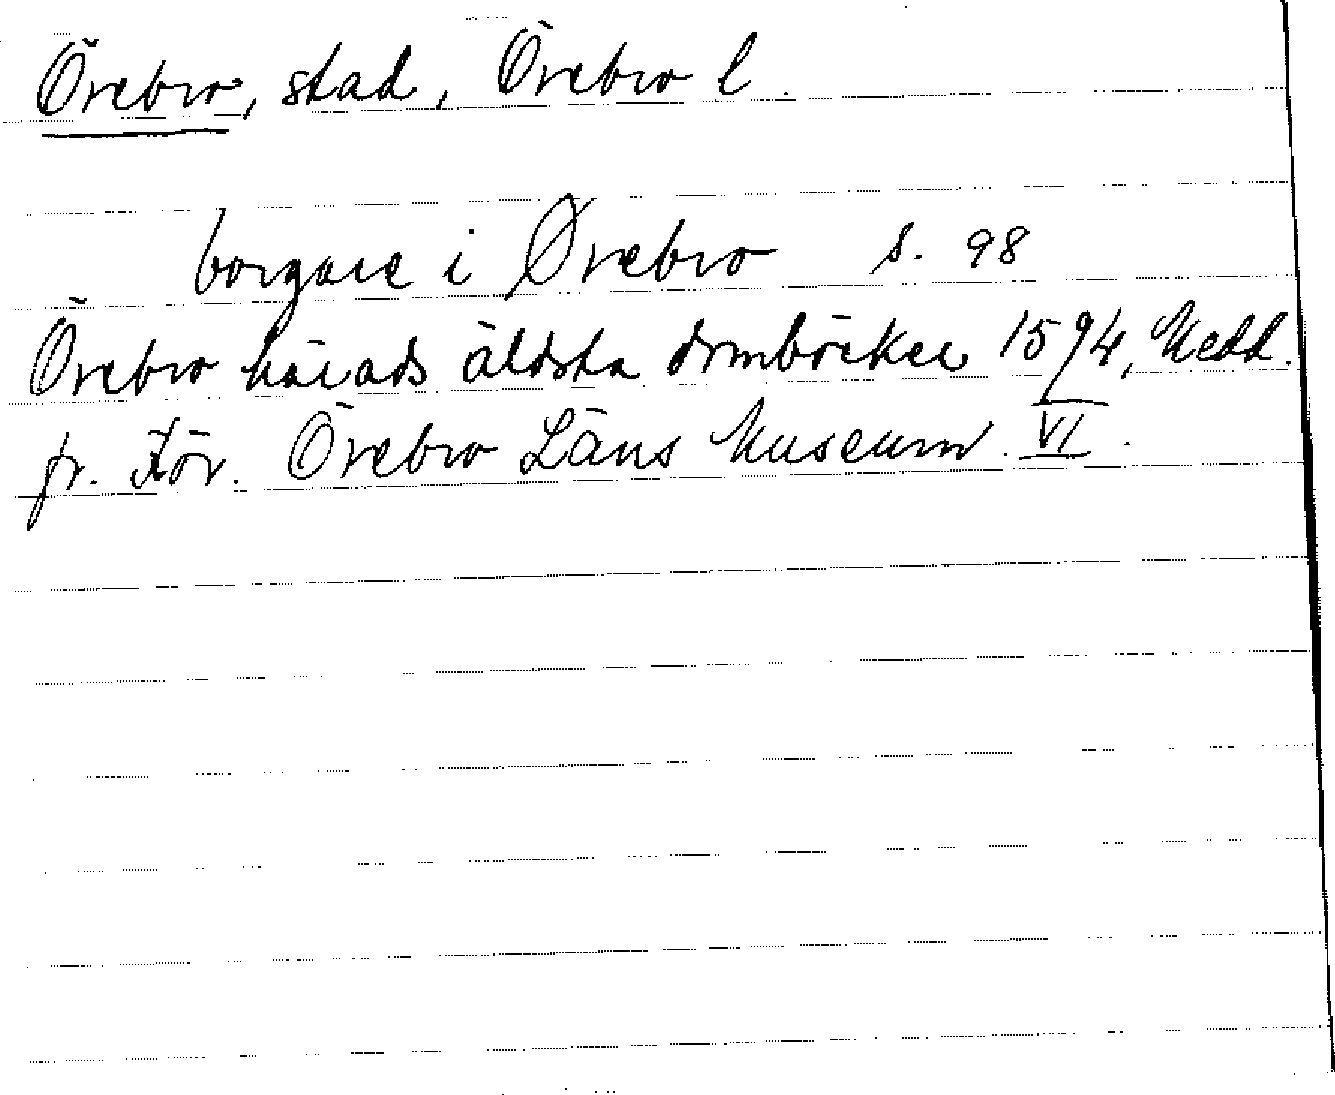 Örebro, stad, Örebro l.
borgare i Ørebro s. 98
Örebro härads äldsta domböcker 1594, Medd.
fr. För. Örebro Läns Museum. VI.